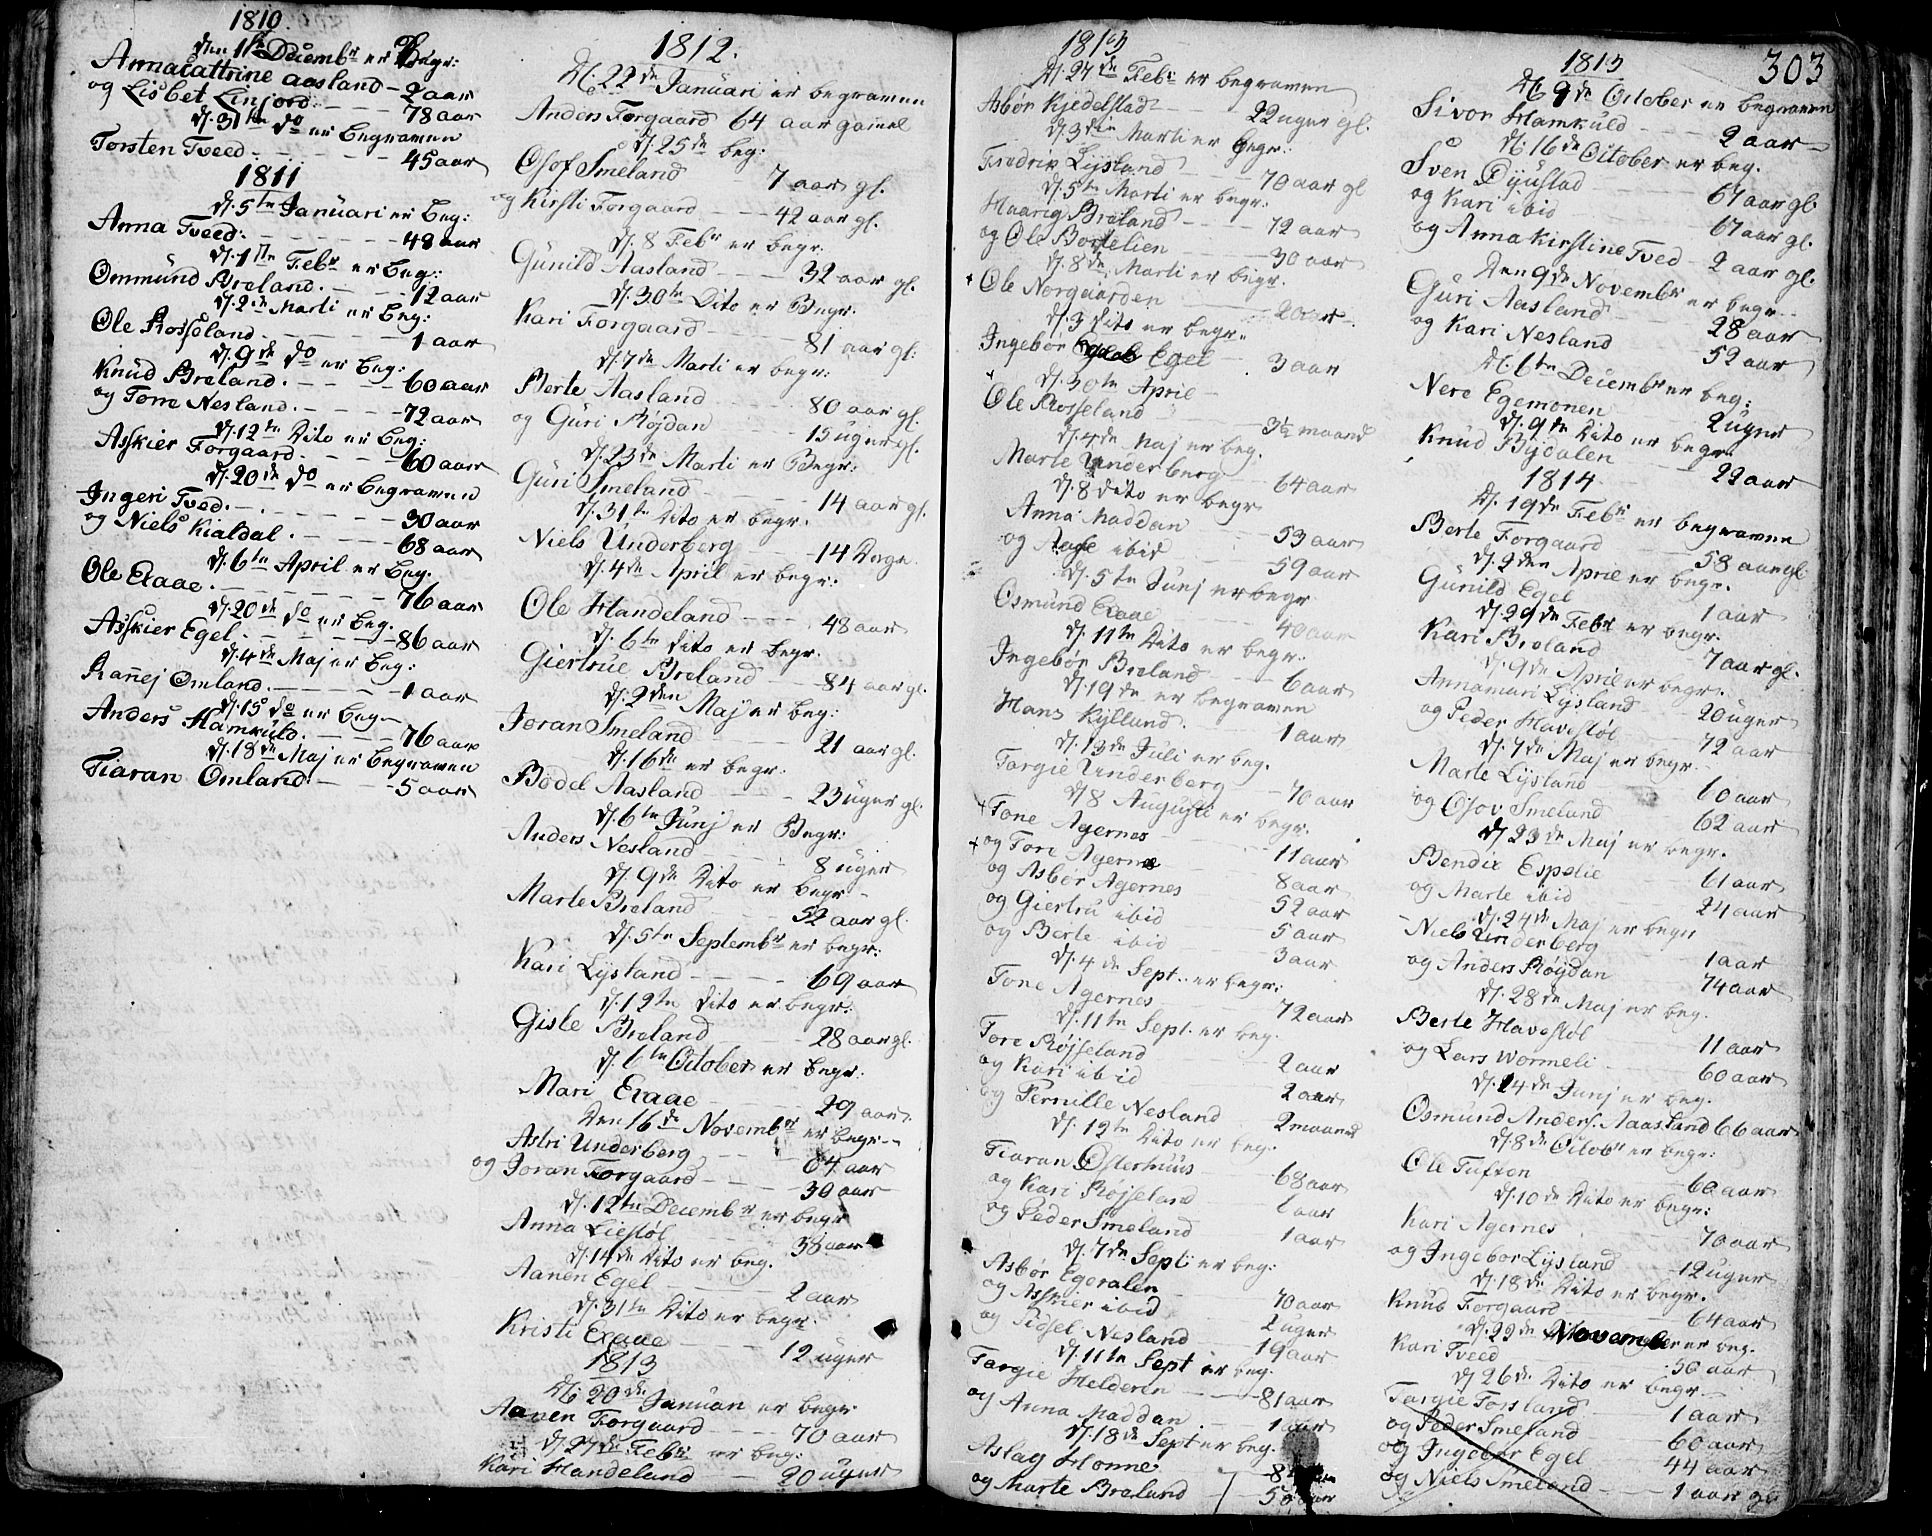 1810.
den 1ste Decembr er Begr:
Annacattrine Aasland - 2 aar
og Lisbet Linjord. - - - 78 aar
d. 31te do er begraven
Torsten Tveed - - - - 45 aar
1811
d. 5te Januari er beg:
Anna Tveed. - - - - 48 aar
d. 1ste Febr er beg:
Ommund Breland. - - - 12 aar
d. 2den Marti er beg:
Ole Rosseland. - - - 1 aar
d. 9de do er beg:
Knud Breland. - - - 60 aar
og Torre Nesland. - - - 72 aar
d. 12te Dito er beg:
Asskier Forgaard. - - - 60 aar
d. 20de do er begraven
Ingeri Tved. - - - - 30 aar
og Niels Kialdal. - - - 68 aar
d. 6te April er beg.
Ole Exaae. - - - - 76 aar
d. 20de do er beg.
Asskier Egel. - - - - 86 aar
d. 4de Maj er beg:
Ranej Omland. - - - - 1 aar
d. 15 do er beg-
Anders Hamkuld. - - - 76 aar
d. 18de Maj er begraven
Tiaran Omland. - - - 5 aar
1812.
d. 22de Januari er begraven
Anders Forgaard 64 aar gamel
d. 25de beg:
Osof Smeland 7 aar gl.
og Kirsti Forgaard - - - 42 aar gl.
d. 8 Febr er begr:
Gunild Aasland - - - 32 aar gl.
d. 30te Dito er Begr:
Kari Forgaard - - - 81 aar gl:
d. 7de Marti er begr:
Berte Aasland - - - 80 aar gl.
og Guri Røjdan - - - 15 uger gl.
d. 23de Marti er Begr:
Guri Smeland - - - 14 aar gl.
d. 31te Dito er begr.
Niels Underberg - - 14 Dage
d. 4de April er begr:
Ole Handeland - - - 48 aar
d. 6te Dito er begr.
Giertrue Breland - - 84 aar gl.
d. 2den Maj er beg:
Joran Smeland - - - 21 aar gl.
d. 16de er begr:
Boddel Aasland - - - 23 uger gl.
d. 6te Junj er Begr:
Anders Nesland - - 8 uger
d. 9de Dito er begr-
Marte Breland - - 52 aar gl.
d. 5te Septembr er begr:
Kari Lysland - - - 69 aar
d. 12te Dito er begr:
Gisle Breland - 28 aar gl.
d. 6te October er begr:
Mari Exaae - - - 29 aar
Den 16de Novembr er begr-
Astri Underberg - - - 64 aar
og Joran Forgaard - - - 30 aar
d. 12te Decembr er begr
Anna Liestøl - - - 38 aar
d. 14de Dito er beg.
Aanen Egel - - - 2 aar
d. 31te Dito er begr:
Kristi Exaae - - - 12 uger
1813
d. 20de Januari er begr
Aanen Forgaard - - - 70 aar
d. 27de Febr er beg:
Kari Handeland - - 20 uger
1813
d. 24de Febr er begraven
Asbør Kjedelstad - - 22 uger gl.
d. 3die Marti er begr:
Fredrik Lysland - - 70 aar gl
d. 5te Marti er begr:
Haarig Breland - - - 72 aar
og Ole Bortelien - - 30 aar
d. 8de Marti er begr.
Ole Norgaarden - - 20 aar
d. 3 Dito er begr.
Ingebor Egel - 3 aar
d. 30te April -
Ole Rosseland - - 3½ maaned
d. 4de Maj er beg.
Marte Underberg - 64 aar
d. 8 dito er begr
Anna Haddan - - 53 aar
og Aase ibid - - 59 aar
d. 5te Junj er begr
Osmund Exaae - - 40 aar
d. 11te Dito er begr:
Ingebør Breland - - 6 aar
d. 19de er begraven
Hans Kyllund. - - 1 aar
d. 13de Juli er beg.
Targie Underberg - - 70 aar
d. 8 Augusti er begr.
Tone Agernes - - 11 aar
og Tore Agernes - - 8 aar
og Asbør Agernes - 52 aar
og Giertru ibid - 5 aar
og Berte ibid - 3 aar
d. 4de Sept. er begr:
Tone Agernes - - 72 aar
d. 11te Sept. er beg.
Tore Røjseland - 2 aar
og Kari ibid - 2 aar
og Pernille Nesland - 2 maaned
d. 12te Dito er beg.
Tiaran Osterhuus - 68 aar
og Kari Røjseland - 1 aar
og Peder Smeland - 1 aar
d. 7de Sept er beg:
Asbør Egeralen - 70 aar
og Asskier ibid - 2 uger
og Sidsel Nesland - 19 aar
d. 11te Sept er beg.
Targie Helderen - - 81 aar
og Anna Haddan. - - 1 aar
d. 18de Sept er beg.
Aslag Homme
og Marte Breland
303
1813
d. 9de October er begraven
Sivor Hamkuld - - - 2 aar
d. 16de October er beg.
Sven Dyustad - - 67 aar gl.
og Kari ibid - - - 67 aar gl.
og Anna Kirstine Tved - 2 aar gl.
Den 9de Novembr er begr.
Guri Aasland - - 28 aar
og Kari Nesland - - 52 aar
d. 6te Decembr er beg:
Nero Egemonen - - 2 uger
d. 9de Dito er begr.
Knud Bydalen - - 22 aar
1814
d. 19de Febr er begraven
Berte Forgaard - - 58 aar gl.
d. 2den April er begr.
Gunild Egel - - 1 aar
d. 29de Febr er begr.
Kari Breland - - 7 aar gl.
d. 9de April er begr.
Annamari Lysland - 20 uger
og Peder Havestøl - 72 aar
d. 7de Maj er begr.
Marte Lysland - - 60 aar
og Osov Smeland - - 62 aar
d. 23de Maj er begr.
Bendix Espelie - - 61 aar
og Marte ibid - - 24 aar
d. 24de Maj er begr
Niels Underberg - - 1 aar
og Anders Røydan - - 74 aar
d. 28de Maj er beg.
Berte Havestøl - - 11 aar
og Lars Wormeli - - 60 aar
d. 14de Junj er beg.
Osmund Anders. Aasland 66 aar
d. 8de Octobr er begr:
Ole Tufton - - 60 aar
d. 10de Dito er begr:
Kari Agernes - - 70 aar
og Ingebor Lysland - 12 uger
d. 18de Dito er begr.
Knud Forgaard - - 64 aar
d. 22de November er beg.
Kari Tveed - - 50 aar
d. 26de Dito er begr.
Targie Forsland - - 1 aar
og Peder Smeland - - 60 aar
og Ingebør Egel - - 44 aar
og Niels Smeland - - 1 aar